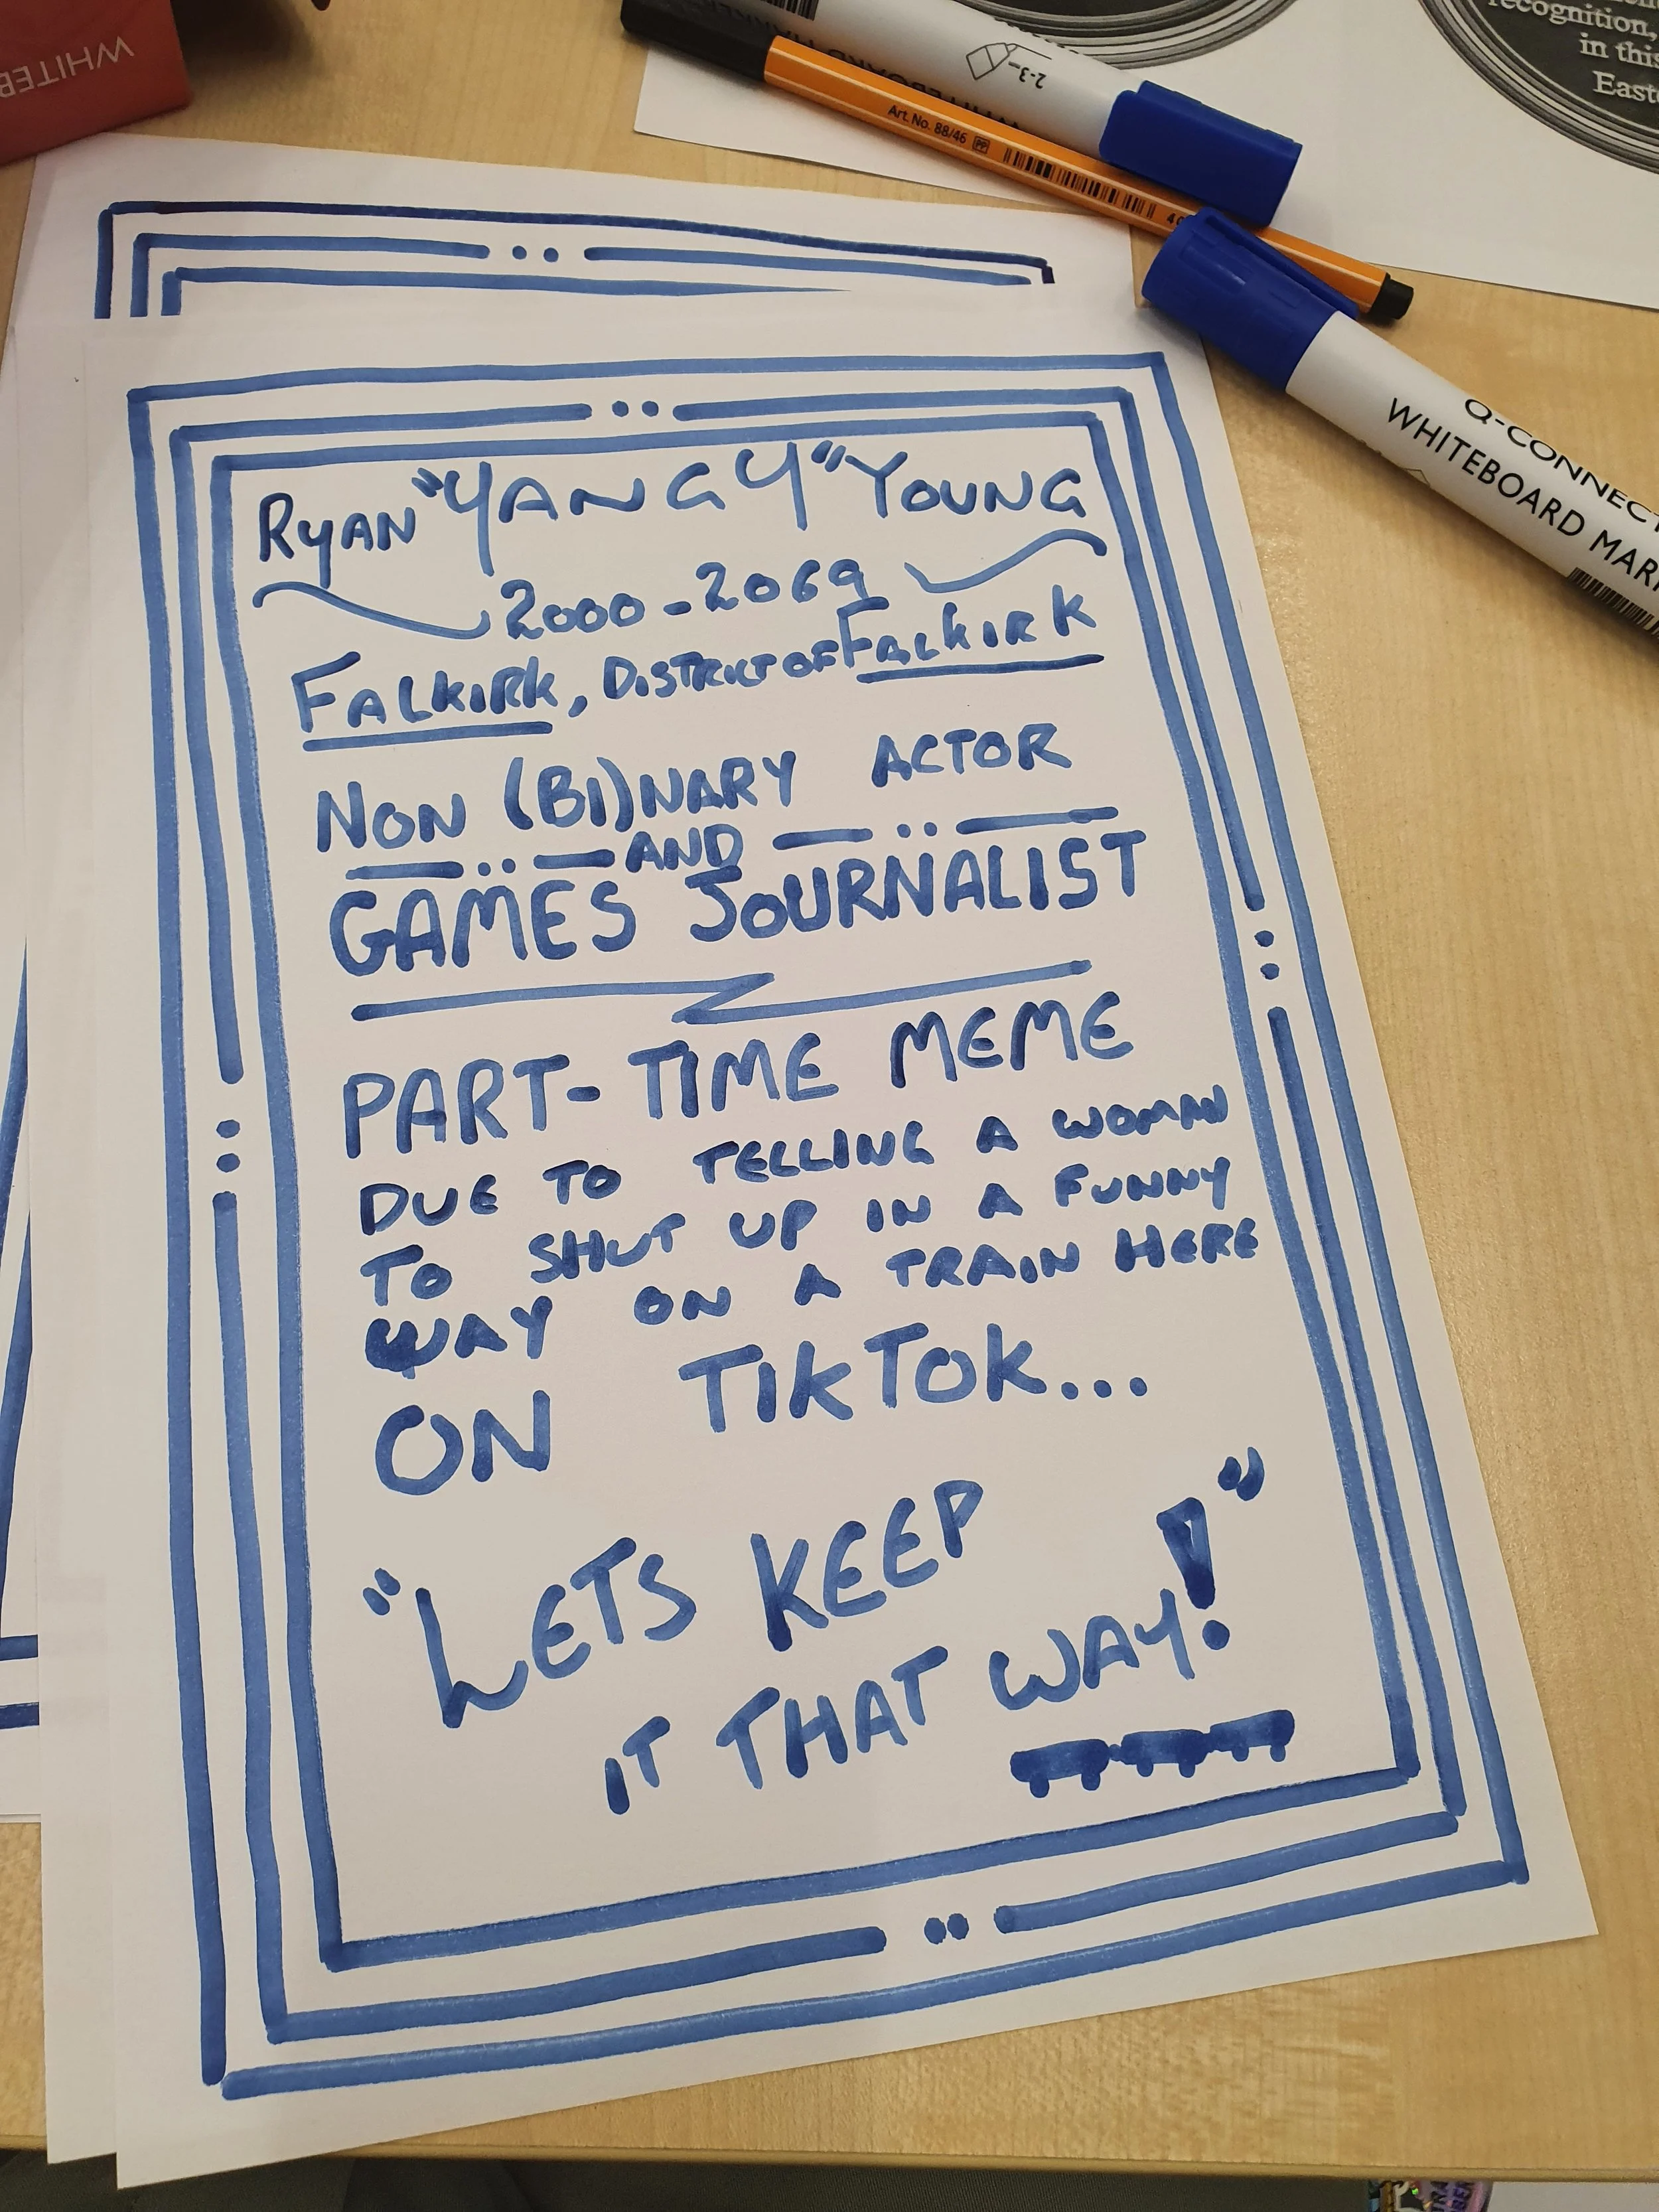 WHITEB
WHITEBOARD MAR
2-3
Art. No. 88/46 PP
recognition,
in this
Easte
Q-CONNECT
WHITEBOARD MAR
RYAN "YANGY" YOUNG
2000-2069
FALKIRK, DISTRICT OF FALKIRK
NON (BI)NARY ACTOR
AND
GAMES JOURNALIST
PART-TIME MEME
DUE TO TELLING A WOMAN
TO SHUT UP IN A FUNNY
WAY ON A TRAIN HERE
ON TIKTOK...
"LETS KEEP
IT THAT WAY!"